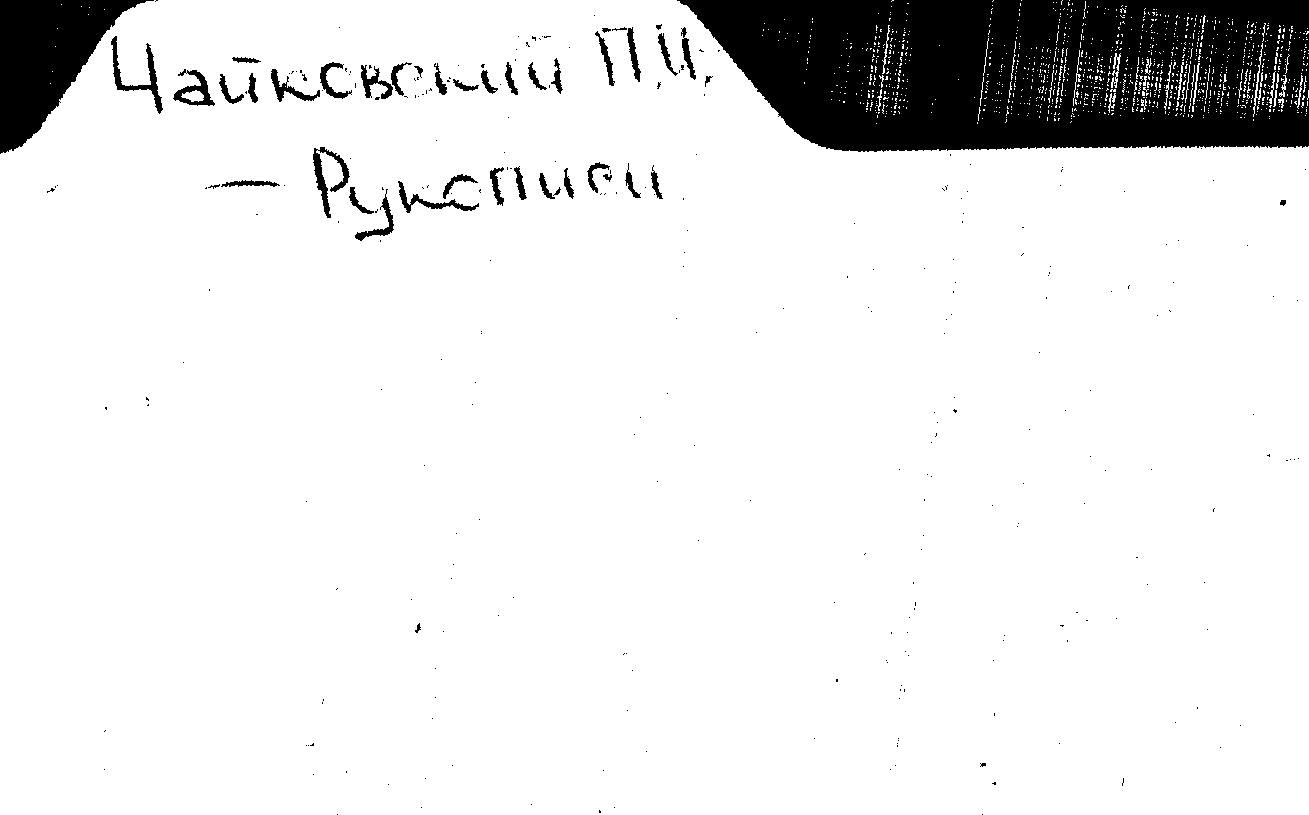 Чайковский П.И.
— Рукописи